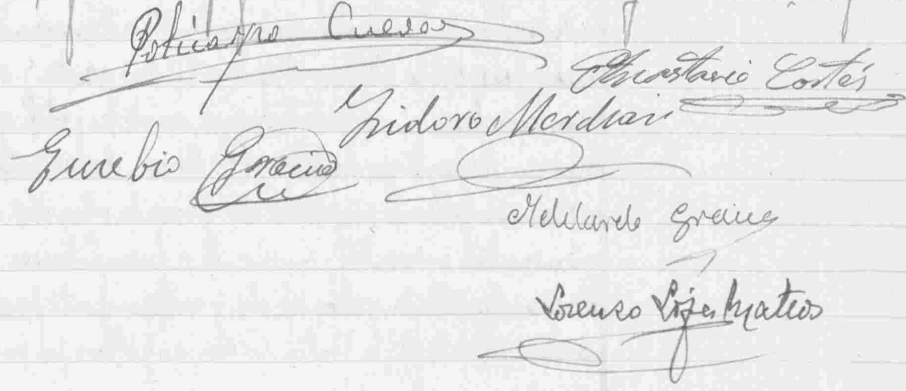 Policarpo Cuevas
Anastasio Cortés
Isidoro
Eusebio Gracia
Abelardo Gracia
Lorenzo López Mateos